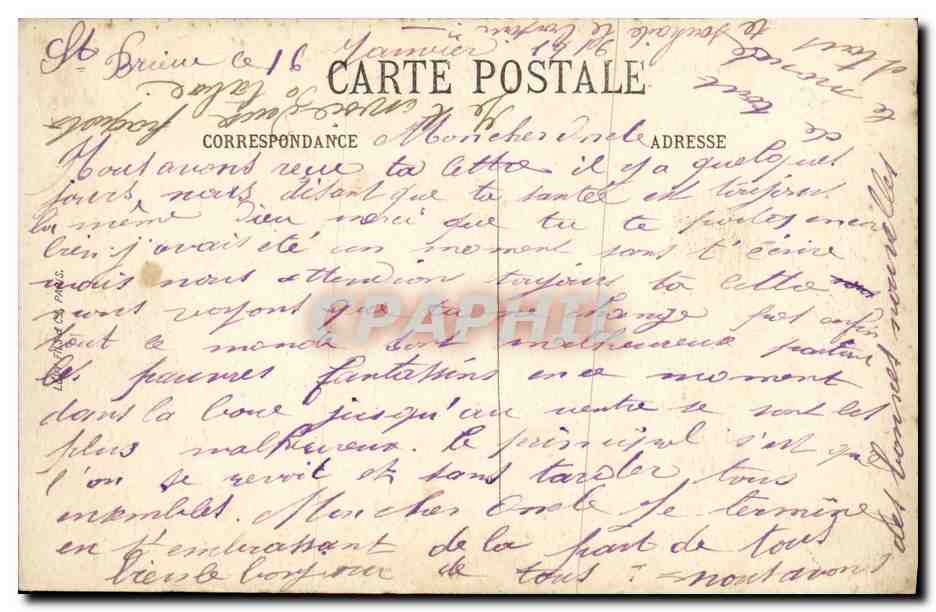 St Brieuc ce 16 Janvier
CARTE POSTALE
CORRESPONDANCE
ADRESSE
Mon cher Oncle
Nous avons reçu ta lettre il y a quelques
jours nous disant que ta santé est toujours
la même Dieu merci que tu te portes
bien. j'avais été un moment sans t'écrire
mais nous attendion toujours ta lettre
nous voyons que ça ne change pas enfin
tout le monde sont malheureux partout
les pauvres fantassins en ce moment
dans la boue jusqu'au ventre se sont les
plus malheureux. le principal s'est que
l'on se revoit et sans tarder tous
ensembles. Mon cher Oncle Je termine
en t'embrassant de la part de tous
bien le bonjour de tous nous avons
des bonnes nouvelles
de tout
le monde
et tous
te souhaite
Je t'envoie deux paquets
de tabac
CPAPHIL